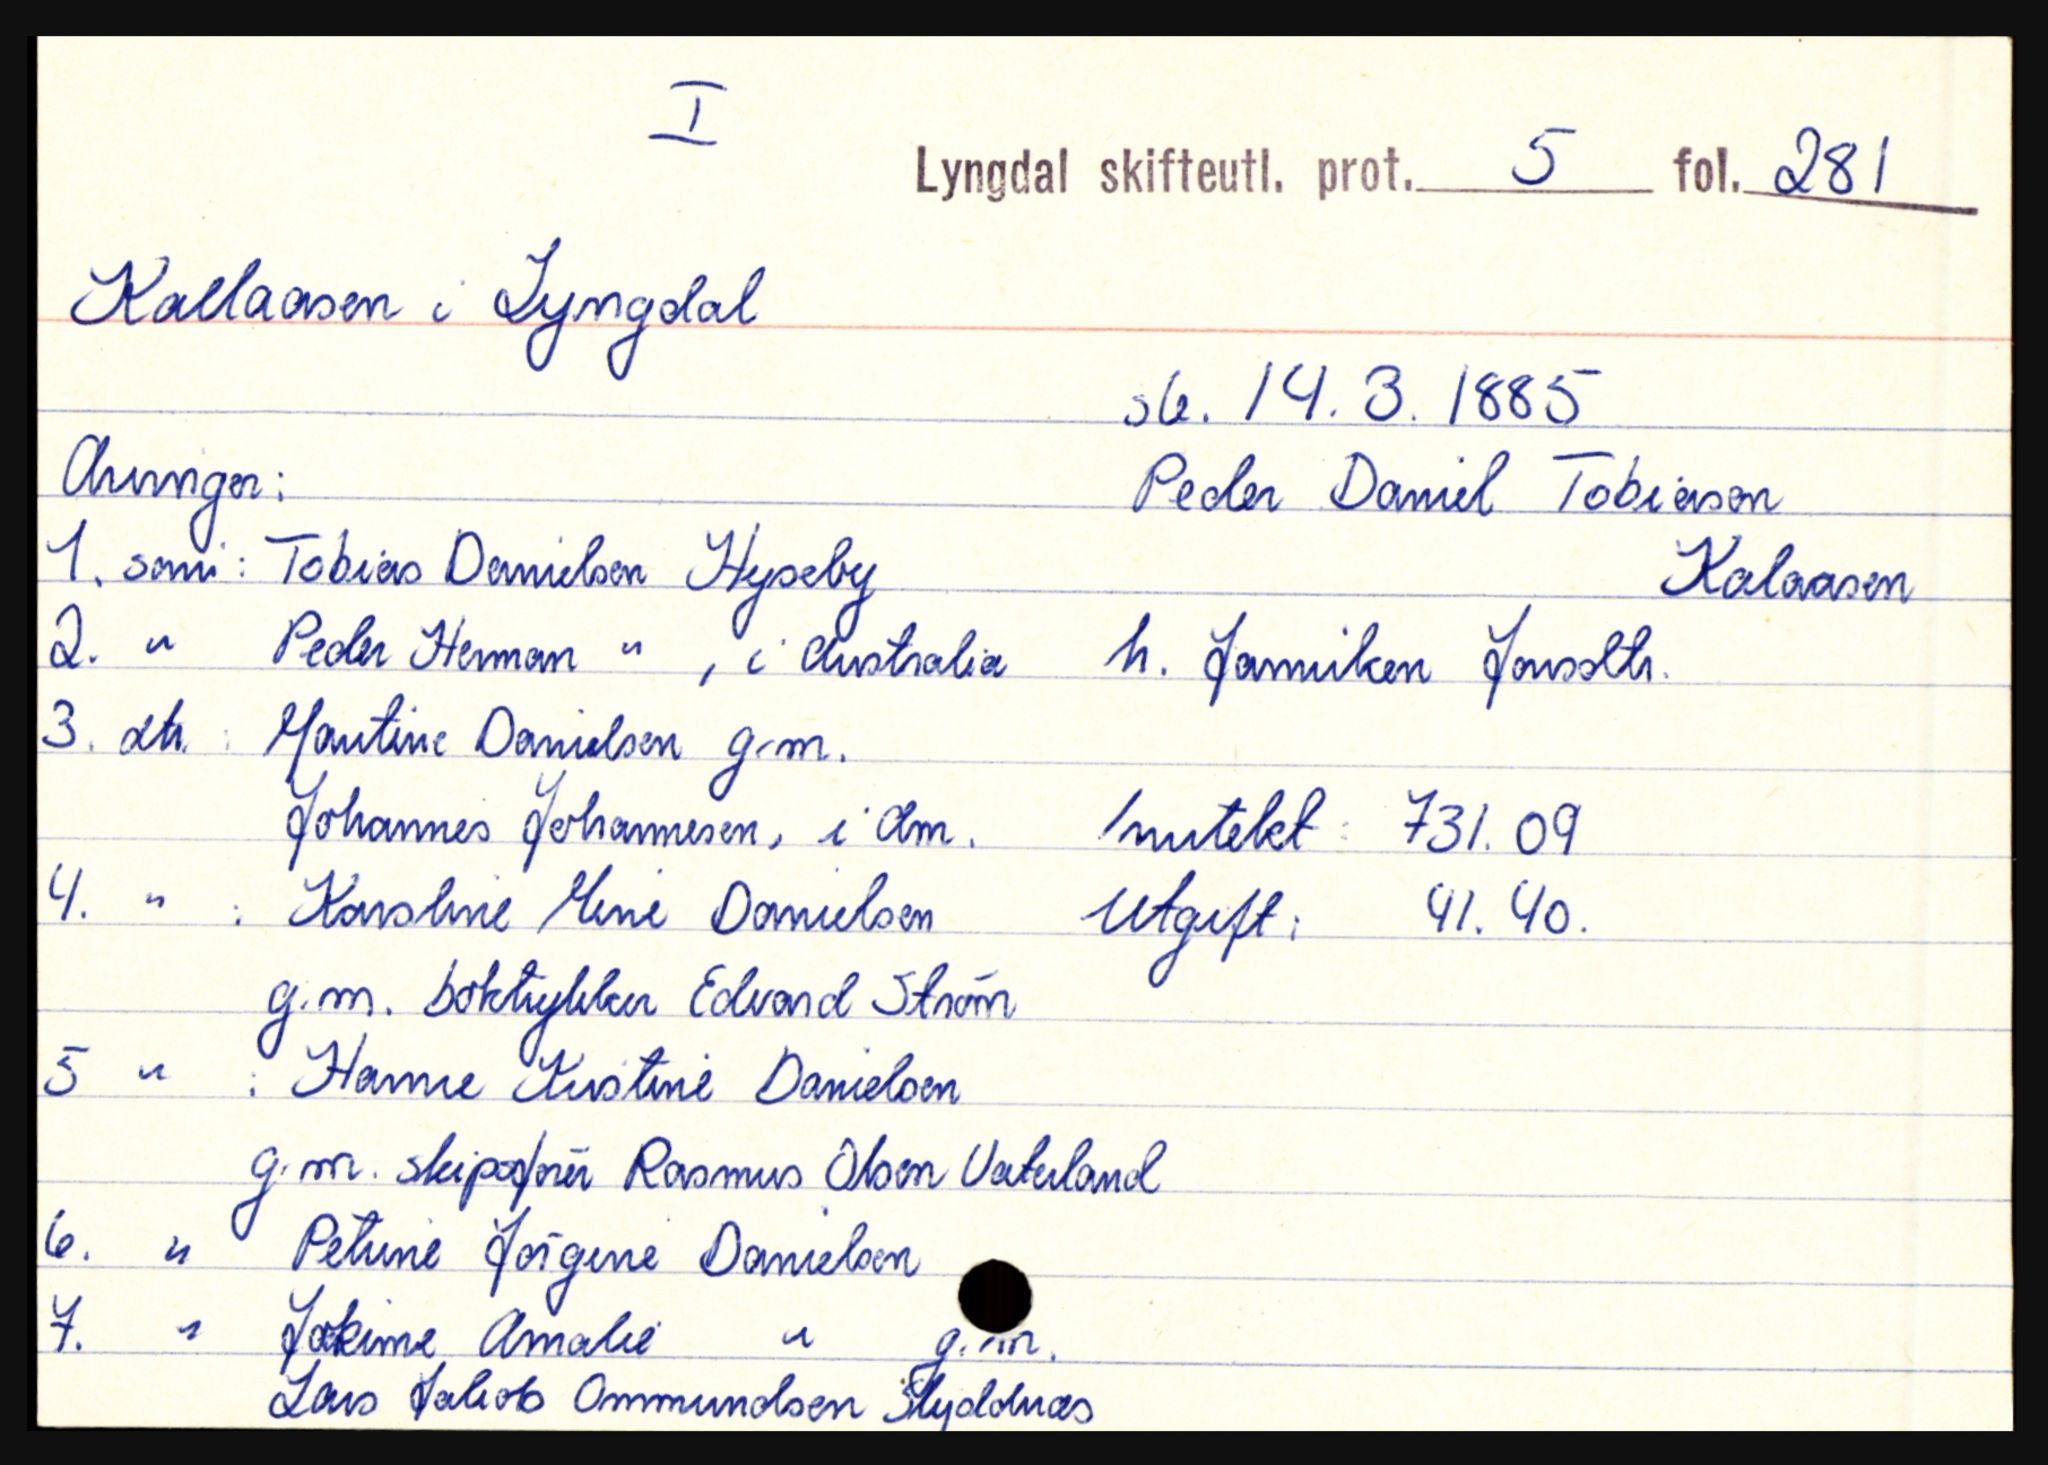 I
Lyngdal skifteutl. prot. 5 fol. 281
Kallaasen i Lyngdal
sb. 14.3.1885
Arvinger:
Peder Daniel Tobiasen
1. sønn: Tobias Danielsen Hyseby
Kalaasen
2. " Peder Herman " , i Australia
h. Jamiken Jonsdtr.
3. dtr. : Martine Danielsen g.m.
Johannes Johannesen, i Am.
Inntekt : 731.09
4. " : Karoline Mine Danielsen
Utgift : 41.40.
g.m. boktrykker Edvard Strøm
5 " : Hanne Kristine Danielsen
g.m. skipsfører Rasmus Olsen Vaterland
6. " Petrine Jørgine Danielsen
7. " Jokime Amalie " g.m.
Lars Jakob Ommundsen